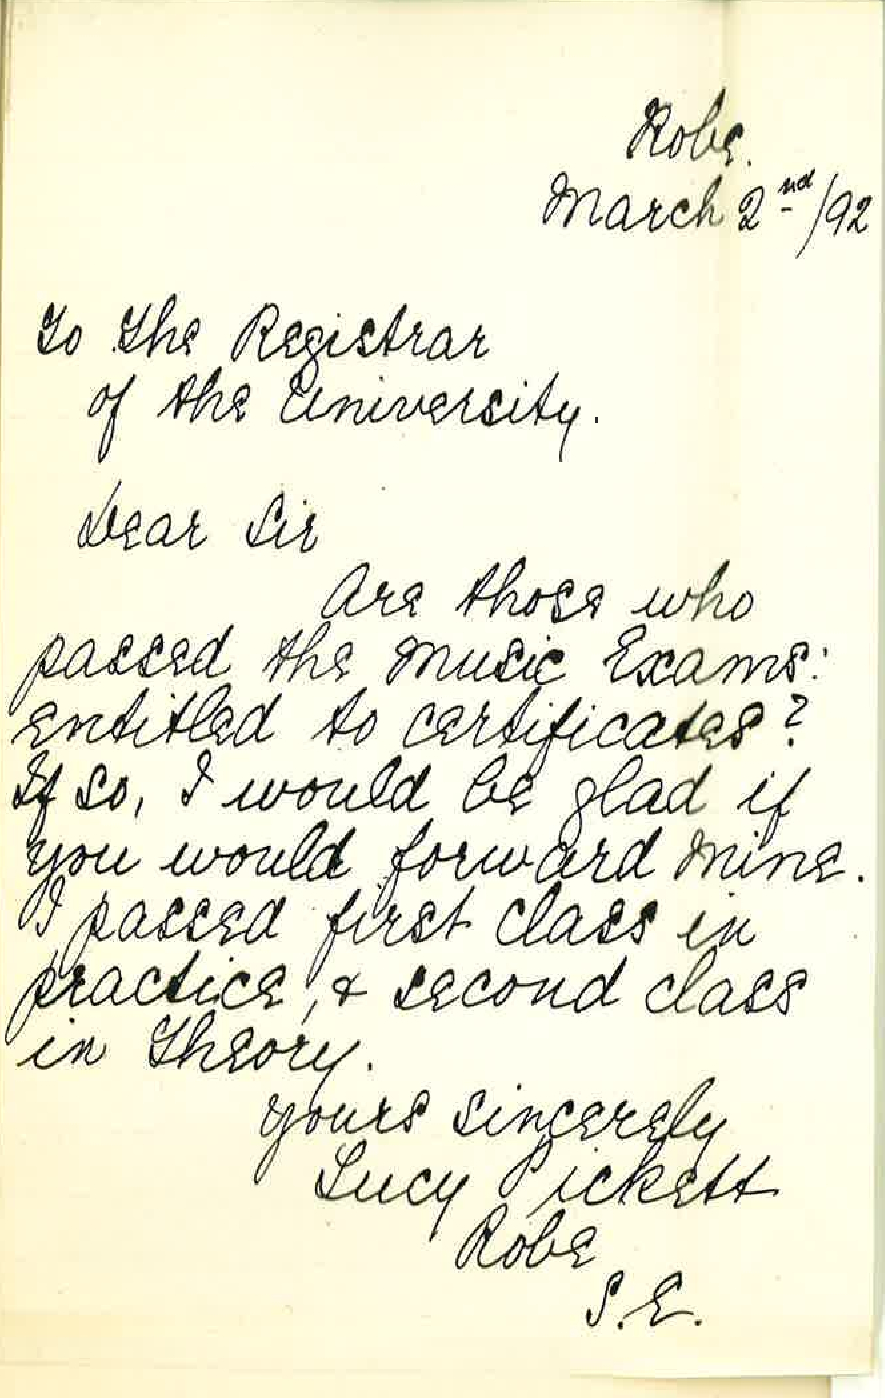 Robe.
March 2nd/92
To The Registrar
of the University.
Dear Sir
Are those who
passed the Music Exams:
entitled to certificates?
If so, I would be glad if
you would forward mine.
I passed first class in
practice, & second class
in Theory.
Yours sincerely
Lucy Pickett
Robe
S.E.